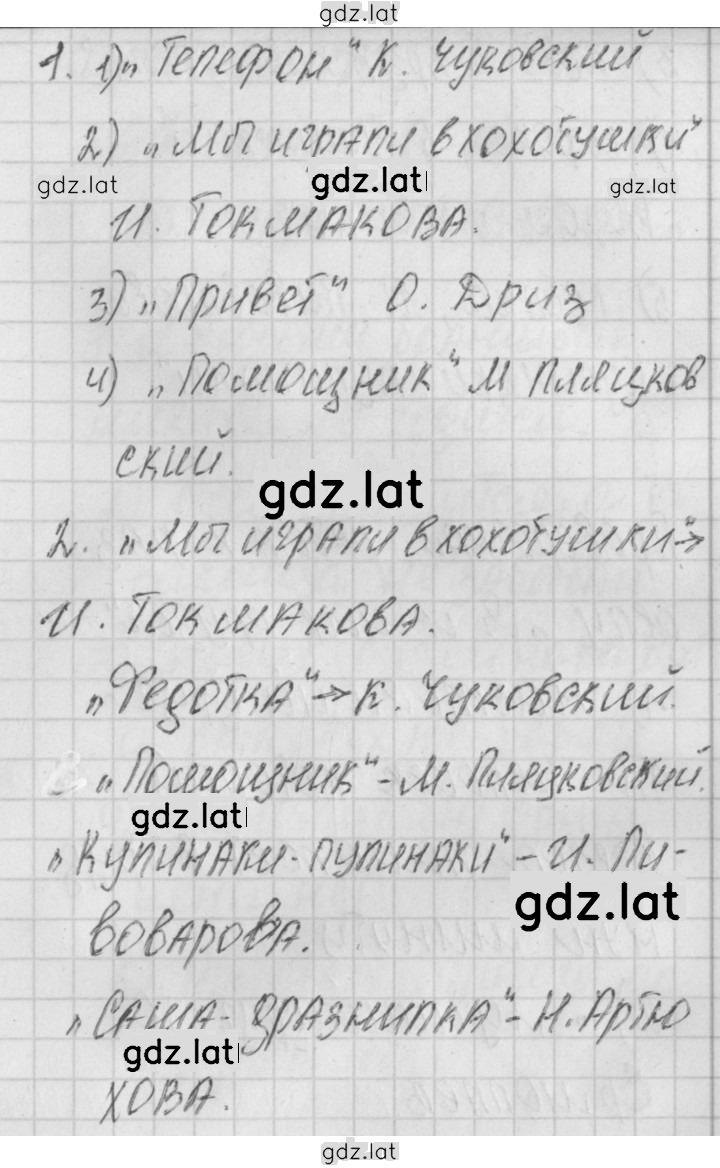 gdz.lat
1. 1) „Телефон“ К. Чуковский
2) „Мы играли в хохотушки“
gdz.lat gdz.lat gdz.lat
И. Токмакова.
3) „Привет“ О. Дриз
4) „Помощник“ М Пляцков
ский.
gdz.lat
2. „Мы играли в хохотушки“→
И. Токмакова.
„Федотка“→ К. Чуковский.
„Помощник“ - М. Пляцковский.
gdz.lat
„Кулинаки-пулинаки“ - И. Пи-
gdz.lat
воварова.
„Саша-дразнилка“ - Н. Артю
gdz.lat
хова.
gdz.lat